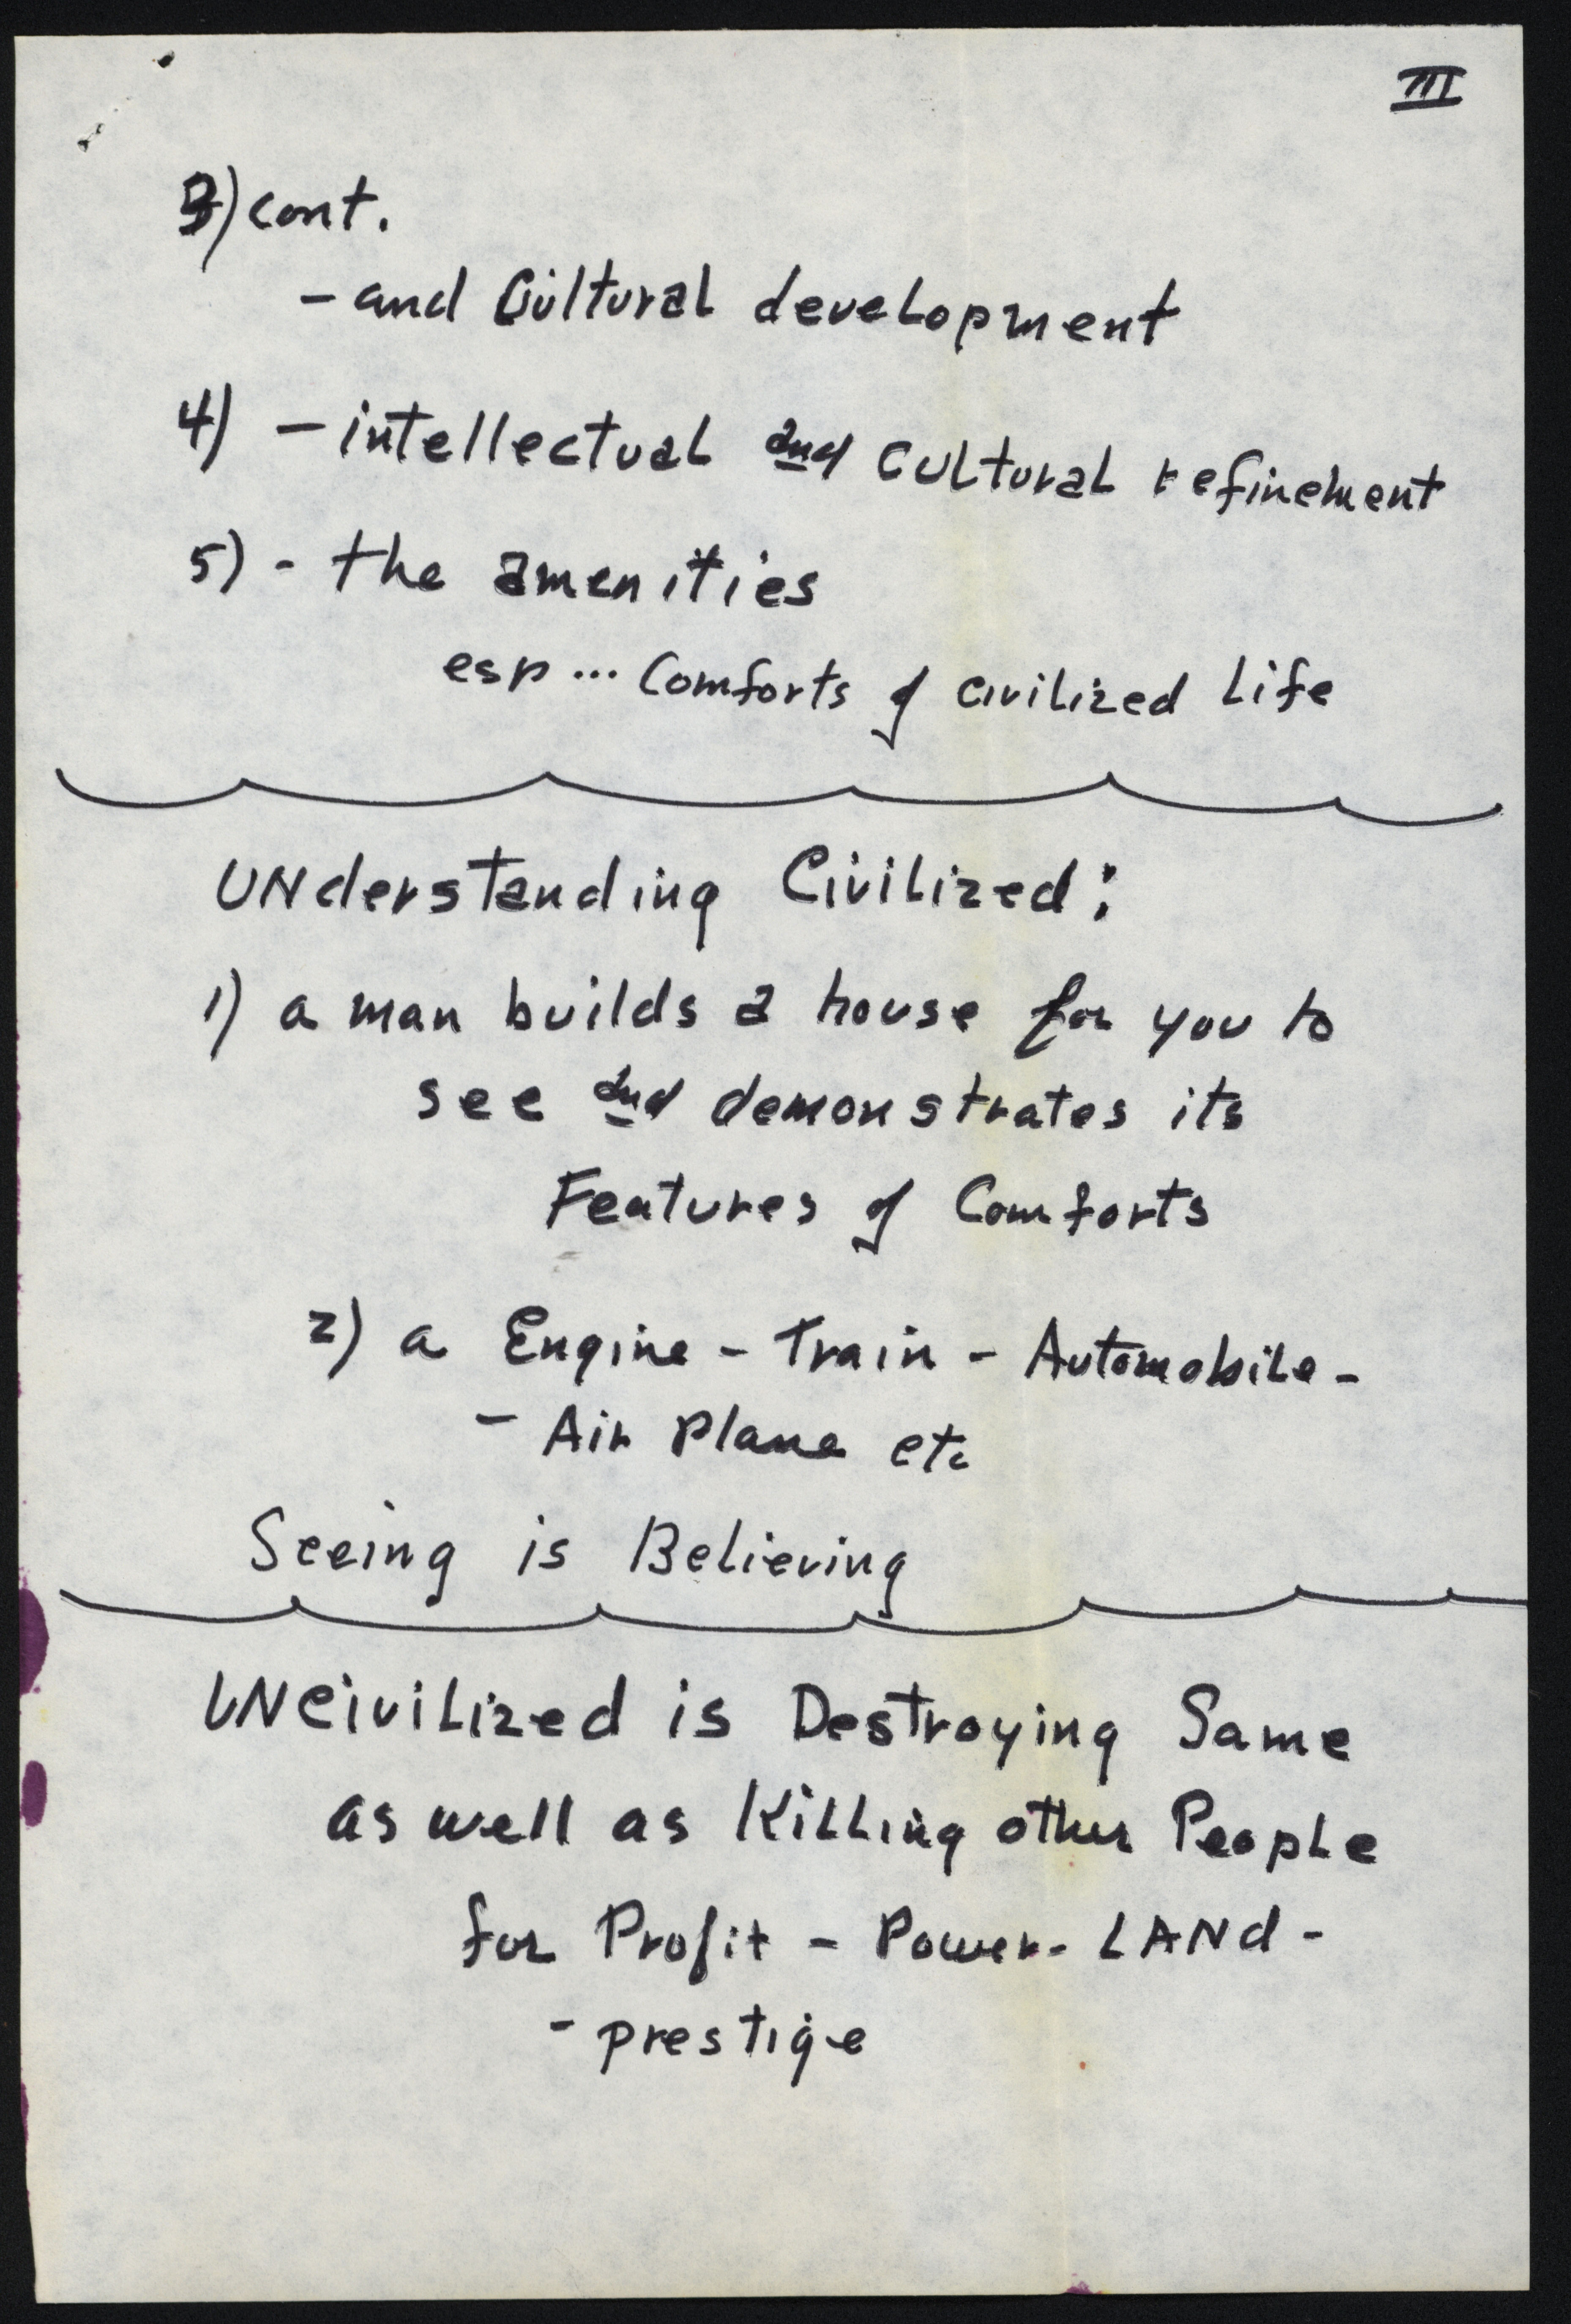 III
3) cont.
- and Cultural development
4) - intellectual and cultural refinement
5) - the amenities
esp ... Comforts of civilized Life
UNderstanding Civilized:
1) a man builds a house for you to
see and demonstrates its
Features of Comforts
2) a Engine - Train - Automobile -
- Air Plane etc
Seeing is Believing
UNCivilized is Destroying Same
as well as Killing other People
for Profit - Power - LANd -
- prestige